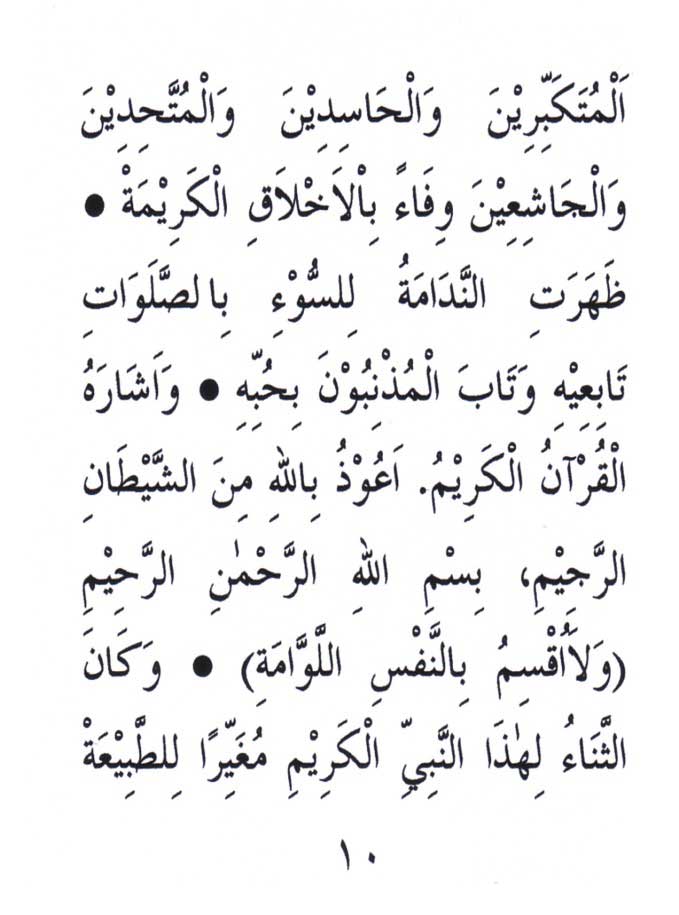 اَلْمُتَكَبِّرِيْنَ وَالْحَاسِدِيْنَ وَالْمُتَّحِدِيْنَ
وَالْجَاشِعِيْنَ وِفَاءً بِاْلاَخْلَاقِ الْكَرِيْمَةْ ●
ظَهَرَتِ النَّدَامَةُ لِلسُّوْءِ بِالصَّلَوَاتِ
تَابِعِيْهِ وَتَابَ الْمُذْنِبُوْنَ بِحُبِّهِ ● وَاَشَارَهُ
الْقُرْآنُ الْكَرِيْمُ. اَعُوْذُ بِاللهِ مِنَ الشَّيْطَانِ
الرَّجِيْمِ، بِسْمِ اللهِ الرَّحْمٰنِ الرَّحِيْمِ
(وَلَااُقْسِمُ بِالنَّفْسِ اللَّوَّامَةِ) ● وَكَانَ
الثَّنَاءُ لِهٰذَا النَّبِيِّ الْكَرِيْمِ مُغَيِّرًا لِلطَّبِيْعَةْ
١٠